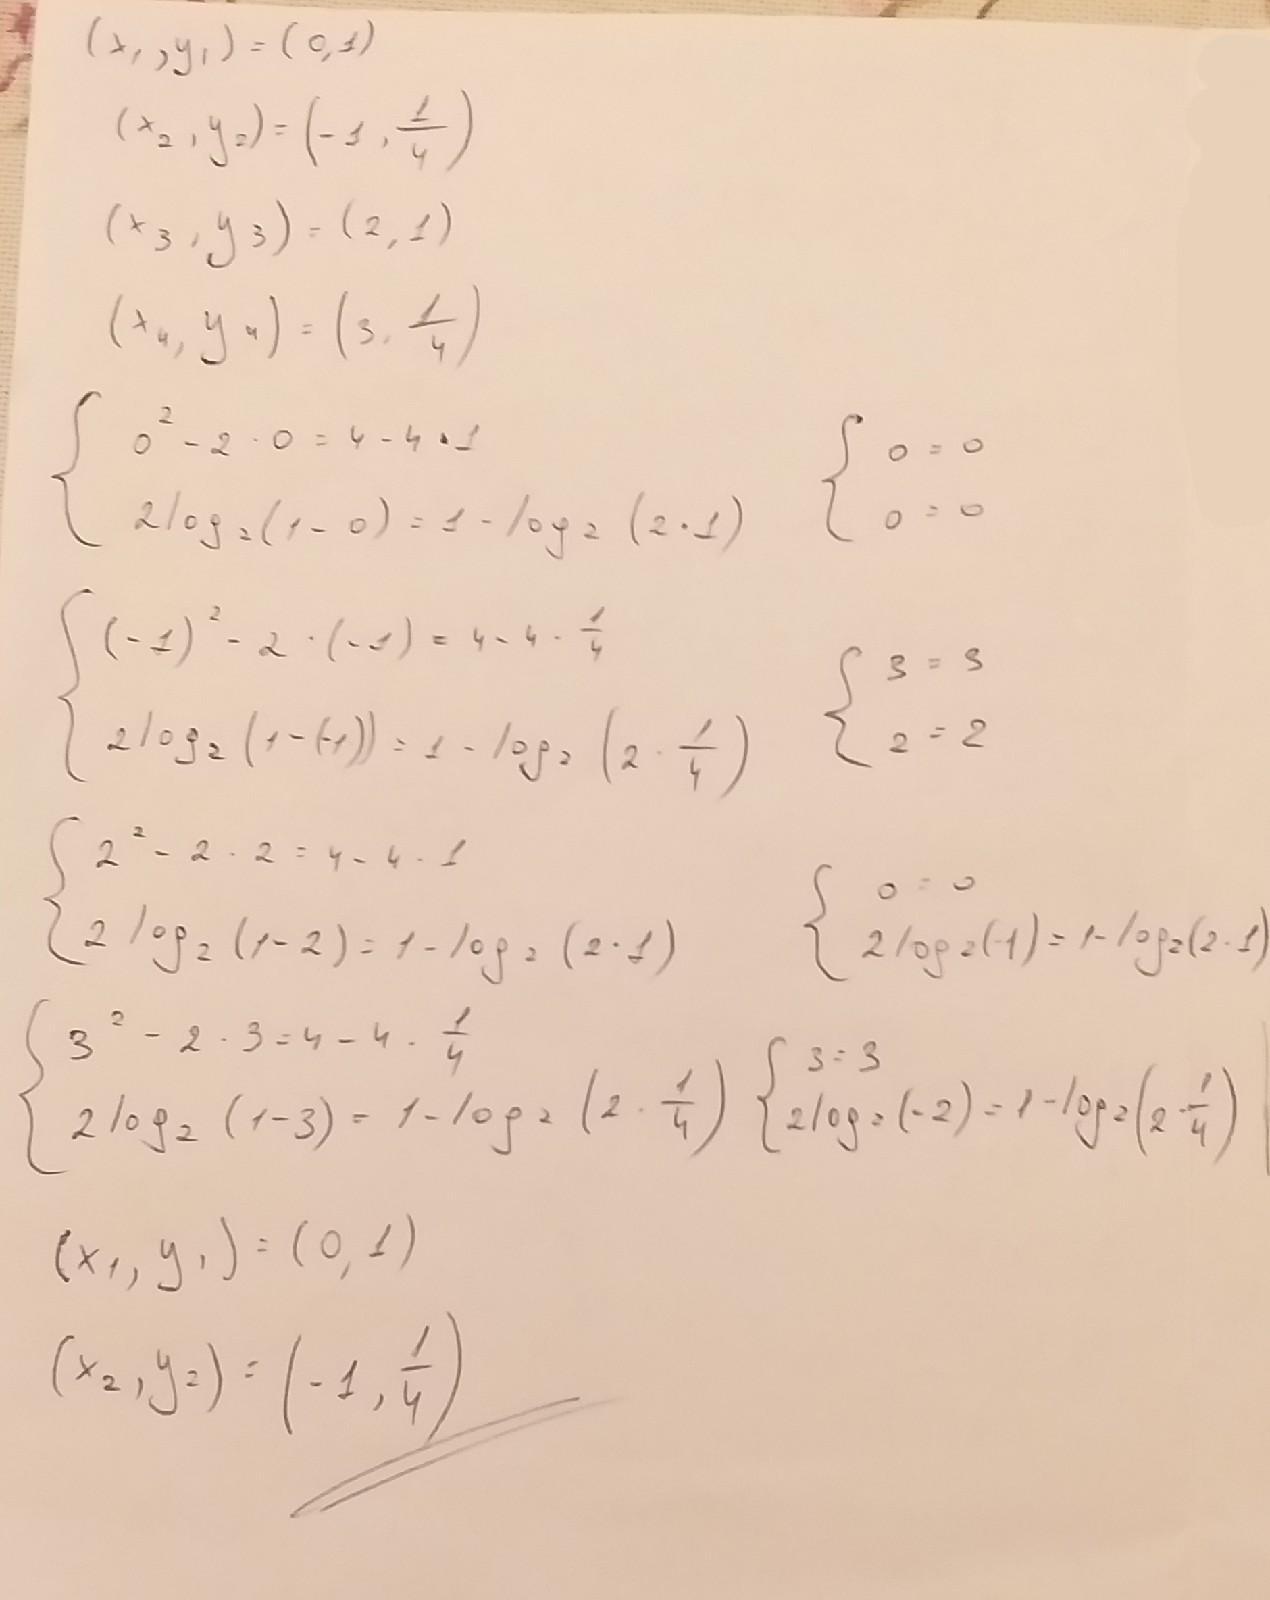 (x₁, y₁) = (0, 1)
(x₂, y₂) = (-1, 1/4)
(x₃, y₃) = (2, 1)
(x₄, y₄) = (3, 1/4)
{ 0² - 2 · 0 = 4 - 4 · 1
2log₂(1 - 0) = 1 - log₂(2 · 1)
{ 0 = 0
0 = 0
{ (-1)² - 2 · (-1) = 4 - 4 · 1/4
2log₂(1-(-1)) = 1 - log₂(2 · 1/4)
{ 3 = 3
2 = 2
{ 2² - 2 · 2 = 4 - 4 · 1
2 log₂(1-2) = 1 - log₂(2 · 1)
{ 0 = 0
2log₂(-1) = 1 - log₂(2 · 1)
{ 3² - 2 · 3 = 4 - 4 · 1/4
2log₂(1-3) = 1 - log₂(2 · 1/4)
{ 3 = 3
2log₂(-2) = 1 - log₂(2 · 1/4)
(x₁, y₁) = (0, 1)
(x₂, y₂) = (-1, 1/4)